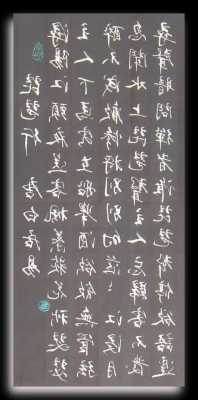 琵琶行 唐白居易
潯陽江頭夜送客楓葉荻花秋瑟瑟
主人下馬客在船舉酒欲飲無管絃
醉不成歡慘將別別時茫々江浸月
忽聞水上琵琶聲主人忘歸客不發
尋聲暗問彈者誰琵琶聲停欲語遲